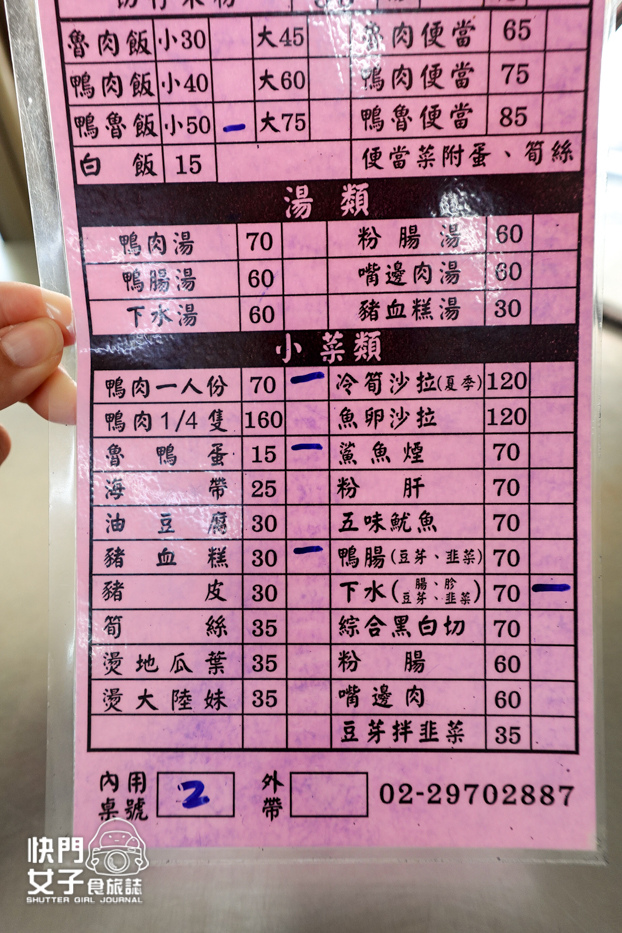 魯肉飯 小30 大45 魯肉便當 65
鴨肉飯 小40 大60 鴨肉便當 75
鴨魯飯 小50 大75 鴨魯便當 85
白飯 15 便當菜附蛋、筍絲
湯類
鴨肉湯 70 粉腸湯 60
鴨腸湯 60 嘴邊肉湯 60
下水湯 60 豬血糕湯 30
小菜類
鴨肉一人份 70 冷筍沙拉(夏季) 120
鴨肉1/4隻 160 魚卵沙拉 120
魯鴨蛋 15 鯊魚煙 70
海帶 25 粉肝 70
油豆腐 30 五味魷魚 70
豬血糕 30 鴨腸(豆芽、韭菜) 70
豬皮 30 下水(腸、胗、豆芽、韭菜) 70
筍絲 35 綜合黑白切 70
燙地瓜葉 35 粉腸 60
燙大陸妹 35 嘴邊肉 60
豆芽拌韭菜 35
內用桌號 2 外帶 02-29702887
快門女子食旅誌
SHUTTER GIRL JOURNAL